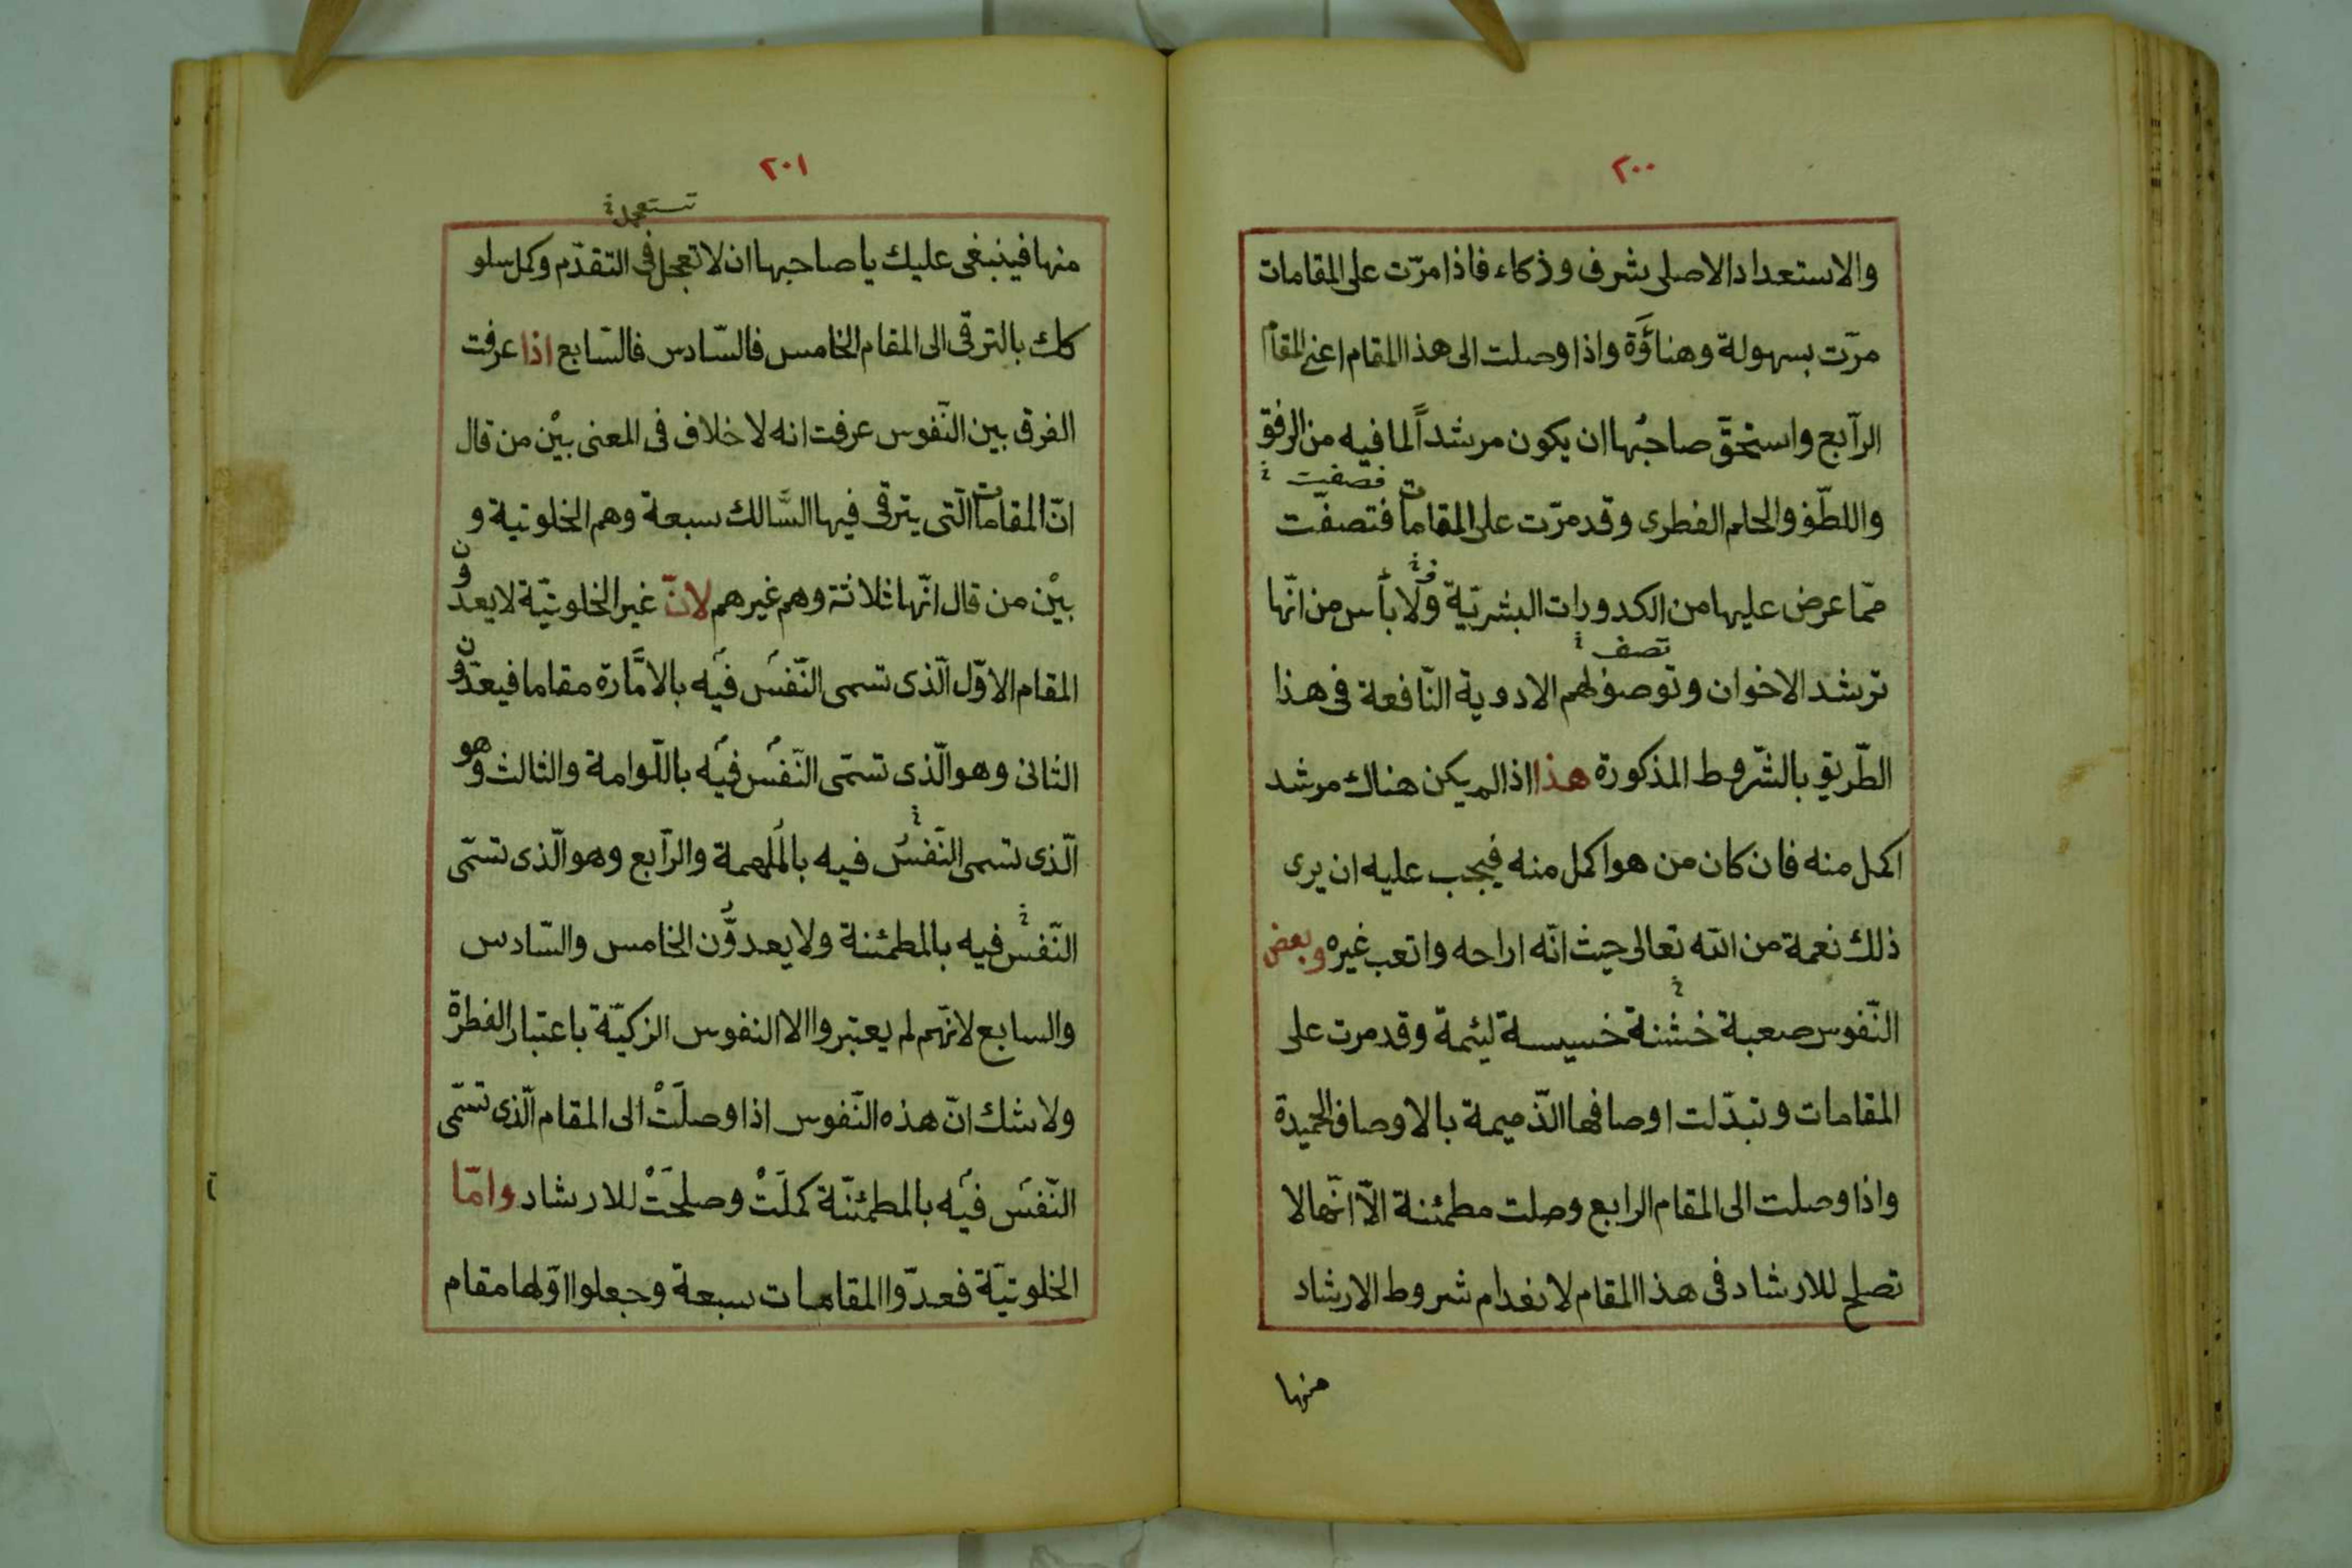 ٢٠٠
والاستعداد الاصلى بشرف وذكاء فاذا مرّت على المقامات
مرّت بسهولة وهناؤَة واذا وصلت الى هذا المقام اعنى المقام
الرّابع واستحقّ صاحبُها ان يكون مرشداً لما فيه من الرفق
فصفيت
واللطّف والحلم الفطرى وقد مرّت على المقامات فتصفّت
ممّا عرض عليها من الكدورات البشريّة ولا بأس من انّها
تصف
ترشد الاخوان وتوصف لهم الادوية النّافعة فى هذا
الطّريق بالشّروط المذكورة هذا اذا لم يكن هناك مرشد
اكمل منه فان كان من هو اكمل منه فيجب عليه ان يرى
ذلك نعمة من الله تعالى حيث انّه اراحه واتعب غيره وبعض
النّفوس صعبة خشنة خسيسة لئيمة وقد مرت على
المقامات وتبدّلت اوصافها الذّميمة بالاوصاف الحميدة
واذا وصلت الى المقام الرابع وصلت مطمئنة الّا انّها لا
تصلح للارشاد فى هذا المقام لانعدام شروط الارشاد
منها
٢٠١
تستعجل
منها فينبغى عليك يا صاحبها ان لا تعجل فى التقدّم وكمل سلو
كك بالترقى الى المقام الخامس فالسّادس فالسّابع اذا عرفت
الفرق بين النّفوس عرفت انه لا خلاف فى المعنى بيْن من قال
انّ المقامات الّتى يترقى فيها السَّالك سبعة وهم الخلوتية و
بيْن من قال انّها ثلاثة وهم غيرهم لانّ غير الخلوتيّة لا يعدّون
المقام الاوّل الّذى تسمى النّفسُ فيه بالامَّارة مقاما فيعدّون
الثانى وهو الّذى تسمّى النّفسُ فيه باللّوامة والثالث وهو
الّذى تسمى النّفسُ فيه بالمُلهمة والرّابع وهو الّذى تسمّى
النّفسُ فيه بالمطمئنة ولا يعدوُّن الخامس والسّادس
والسابع لانّهم لم يعتبروا الا النفوس الزكيّة باعتبار الفطرة
ولا شك انّ هذه النّفوس اذا وصلَتْ الى المقام الّذى تسمّى
النّفسُ فيه بالمطمئنّة كملَتْ وصلحَتْ للارشاد وامّا
الخلوتيّة فعدّوا المقامات سبعة وجعلوا اوّلها مقام